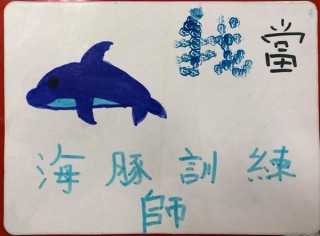 我當
海豚訓練
師